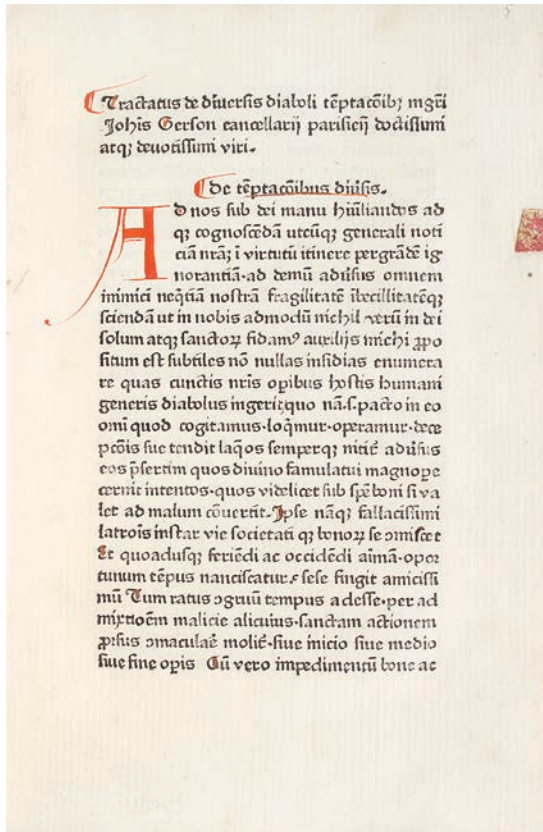 Tractatus de diuersis diaboli tẽptacõibꝫ mgr̃i
Johis̃ Gerson cancellarij parisieñ doctissimi
atqꝫ deuotissimi viri.
De tẽptacõibus diũsis.
AD nos sub dei manu hũiliandos ad
qꝫ cognoscẽdã utcũqꝫ generali noti
ciãn nrãꝫ ĩ virtutũ itinere pergrãdẽ ig
norantiã·ad demũ adũsus omnem
inimici neq̃tiã nostrã fragilitatẽ ĩbecillitatẽqꝫ
sciendã ut in nobis admodũ nichil verũ in dei
solum atqꝫ sanctoꝝ fidam᷒ auxilijs michi ꝓpo
situm est subtiles nõ nullas insidias enumera
re quas cunctis nr̃is oꝑibus hostis humani
generis diabolus ingerit quo nã.s.pacto in eo
om̃i quod cogitamus·loq̃mur·operamur·dece
pcõis sue tendit laq̃os semperqꝫ nitit̃ adũsus
eos p̃sertim quos diuino famulatui magnoꝑe
cernit intentos·quos videlicet sub sp̃e boni si va
let ad malum cõuertit·Jpse nãqꝫ fallacissimi
latrois̃ instar vie societati qꝫ bonoꝝ se ɔmiscet
Et quoadusqꝫ feriẽdi ac occidẽdi aĩmã·opor
tunum tẽpus nanciscatur sese fingit amicissi
mũ Tum ratus ɔgruũ tempus adesse·per ad
mixtioẽm malicie alicuius·sanctam actionem
ꝓrsus ɔmaculaẽ molit̃·siue inicio siue medio
siue fine oꝑis Cũ vero impedimentũ bone ac